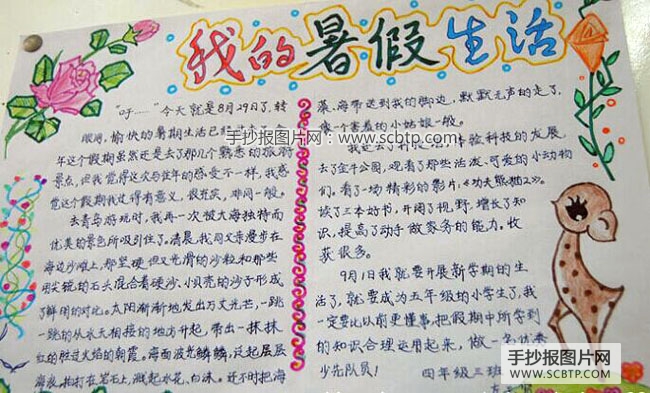 我的暑假生活
"吁……"今天就是8月29日了,转
眼间,愉快的暑期生活已
手抄报图片网 www.scbtp.com
年这个假期虽然还是去了那几个熟悉的旅游
景点,但我觉得这次与往年的感受不一样,我感
觉这个假期我过得有意义,很充实,非同一般。
去青岛游玩时,我再一次被大海独特而
优美的景色所吸引住了。清晨,我同父亲漫步在
海边沙滩上,那坚硬但又光滑的沙粒和那些
的石头混合着硬沙、小贝壳的沙子形成
了鲜明的对比。太阳渐渐地发出万丈光芒,一跳
一跳的从水天相接的地方升起,带出一抹抹
红的胜过火焰的朝霞。海面波光鳞鳞,泛起层层
海浪,拍打在岩石上,溅起水花、白沫。还不时把海
藻、海带送到我的脚边,默默无声的走了,
像一个害羞的小姑娘一般。
体验科技的发展
去了金牛公园,观看了那些活泼、可爱的小动物
们,看了一场精彩的影片,《功夫熊猫2》。
读了三本好书,开阔了视野,增长了知
识,提高了动手做家务的能力。收
获很多。
9月1日我就要开展新学期的生
活了,就要成为五年级的小学生了,我
一定要比以前更懂事,把假期中所学到
的知识合理运用起来,做一名优秀
少先队员!
四年级三班
手抄报图片网
WWW.SCBTP.COM